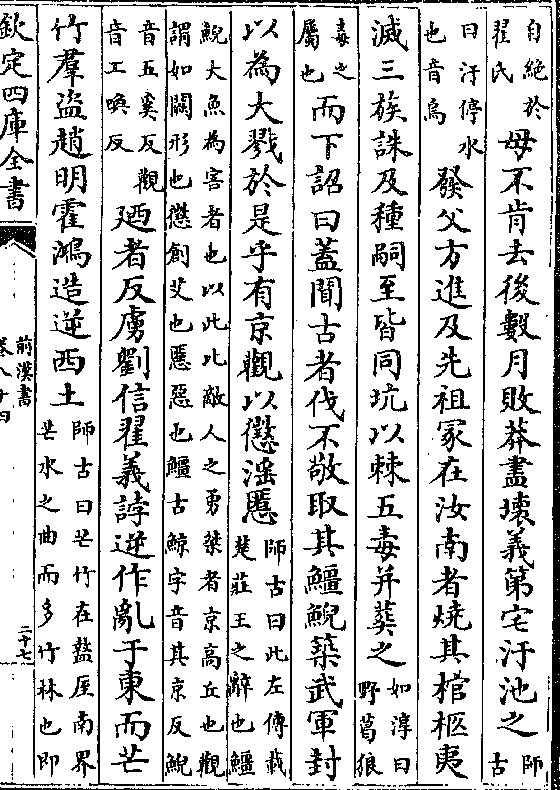 自絶於
翟氏
母不肯去後數月敗莽盡壞義第宅汙池之
師古
曰汙停水
也音烏
發父方進及先祖冢在汝南者燒其棺柩夷
滅三族誅及種嗣至皆同坑以棘五毒并葬之
如淳曰
野葛狼
毒之
屬也
而下詔曰蓋聞古者伐不敬取其鱷鯢築武軍封
以為大戮於是乎有京觀以懲淫慝
師古曰此左傳載
楚莊王之辭也鱷
鯢大魚為害者也以此比敵人之勇桀者京高丘也觀
謂如闕形也懲創乂也慝惡也鱷古鯨字音其京反鯢
音五奚反觀
音工喚反
廼者反虜劉信翟義誖逆作亂于東而芒
竹羣盜趙明霍鴻造逆西土
師古曰芒竹在盩厔南界
芒水之曲而多竹林也即
欽定四庫全書
前漢書
卷八十四
二十七